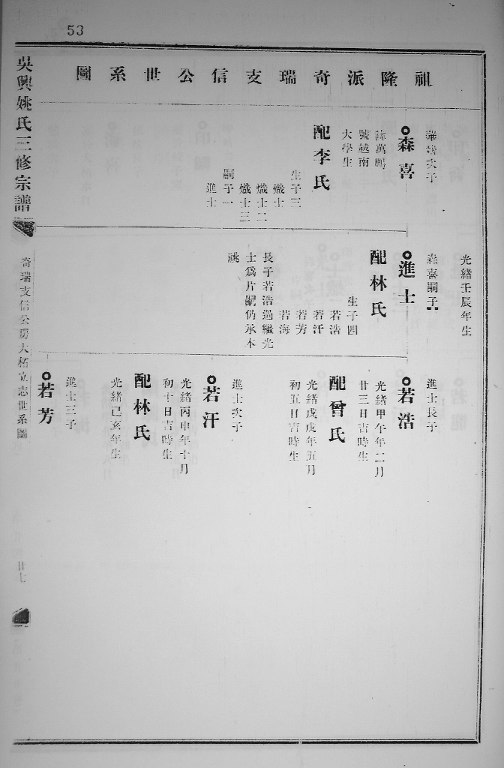 53
祖隆派奇瑞支信公世系圖
吳興姚氏三修宗譜
奇瑞支信公房大栢立志世系圖
森喜
號越南
大學生
配李氏
生子三
熾士
熾士二
熾士三
嗣子一
進士
光緒壬辰年生
森喜嗣子
進士
配林氏
生子四
若浩
若汗
若芳
若海
長子若浩過繼光
士為片嗣仍承本
進士長子
若浩
光緒甲午年二月
廿三日吉時生
配曾氏
光緒戊戌年五月
初五日吉時生
進士次子
若汗
光緒丙申年十月
初十日吉時生
配林氏
光緒己亥年生
進士三子
若芳